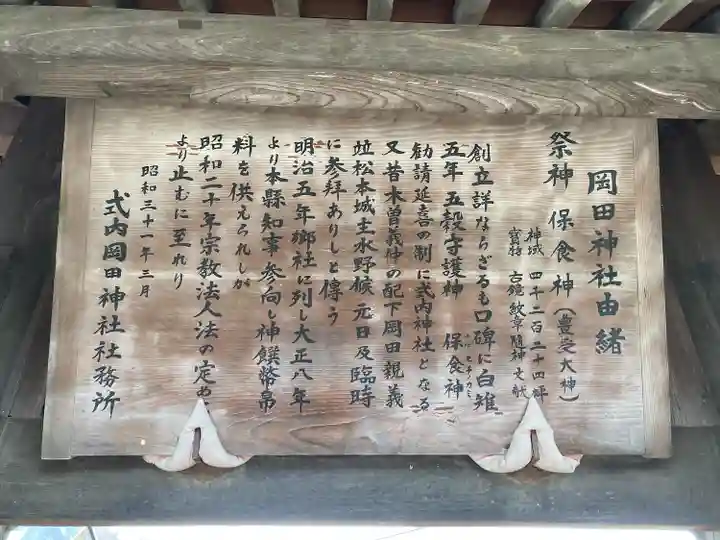 岡田神社由緒
祭神 保食神(豊受大神)
神域 四千二百二十四坪
寳物 古鏡紋章随神文献
創立詳ならざるも口碑に白雉
五年 五穀守護神 保食神
ウケモチノカミ
勧請延喜の制に式内神社となる
又昔木曽義仲の配下岡田親義
竝松本城主水野候元日及臨時
に参拝ありしと傳う
明治五年郷社に列し大正八年
より本縣知事参向し神饌幣帛
料を供えられしが
昭和二十年宗教法人法の定め
より止むに至れり
昭和三十一年三月
式内岡田神社社務所